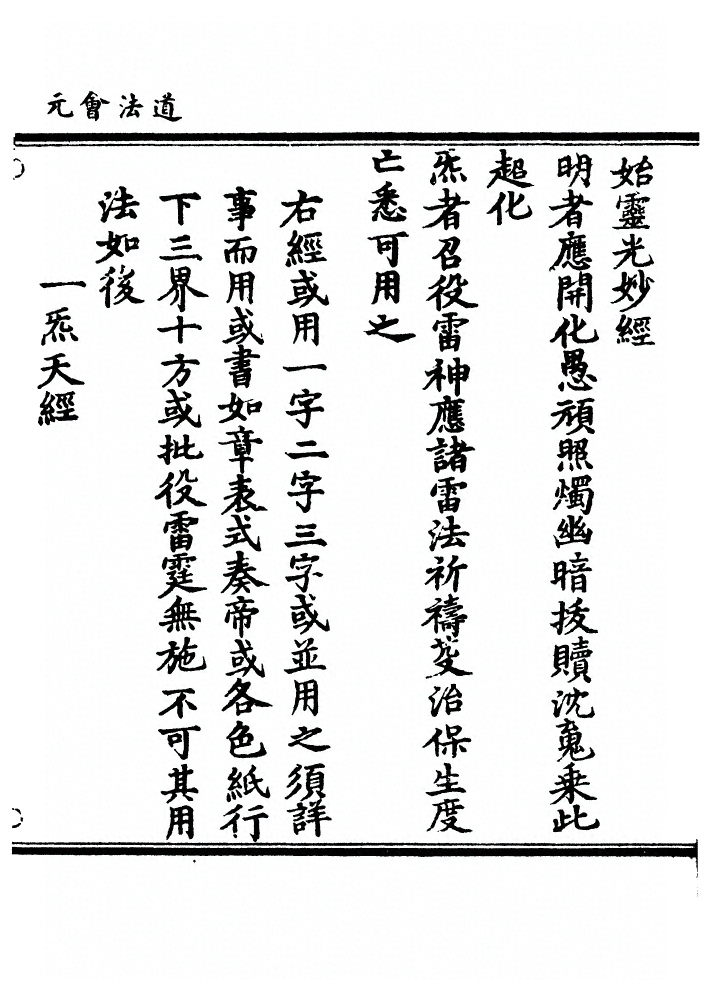 道法會元
始靈光妙經
明者應開化愚頑照燭幽暗拔贖沈䰟乗此
超化
炁者召役雷神應諸雷法祈禱
治保生度
亡悉可用之
右經或用一字二字三字或並用之須詳
事而用或書如章表式奏帝或各色紙行
下三界十方或批役雷霆無施不可其用
法如後
一炁天經